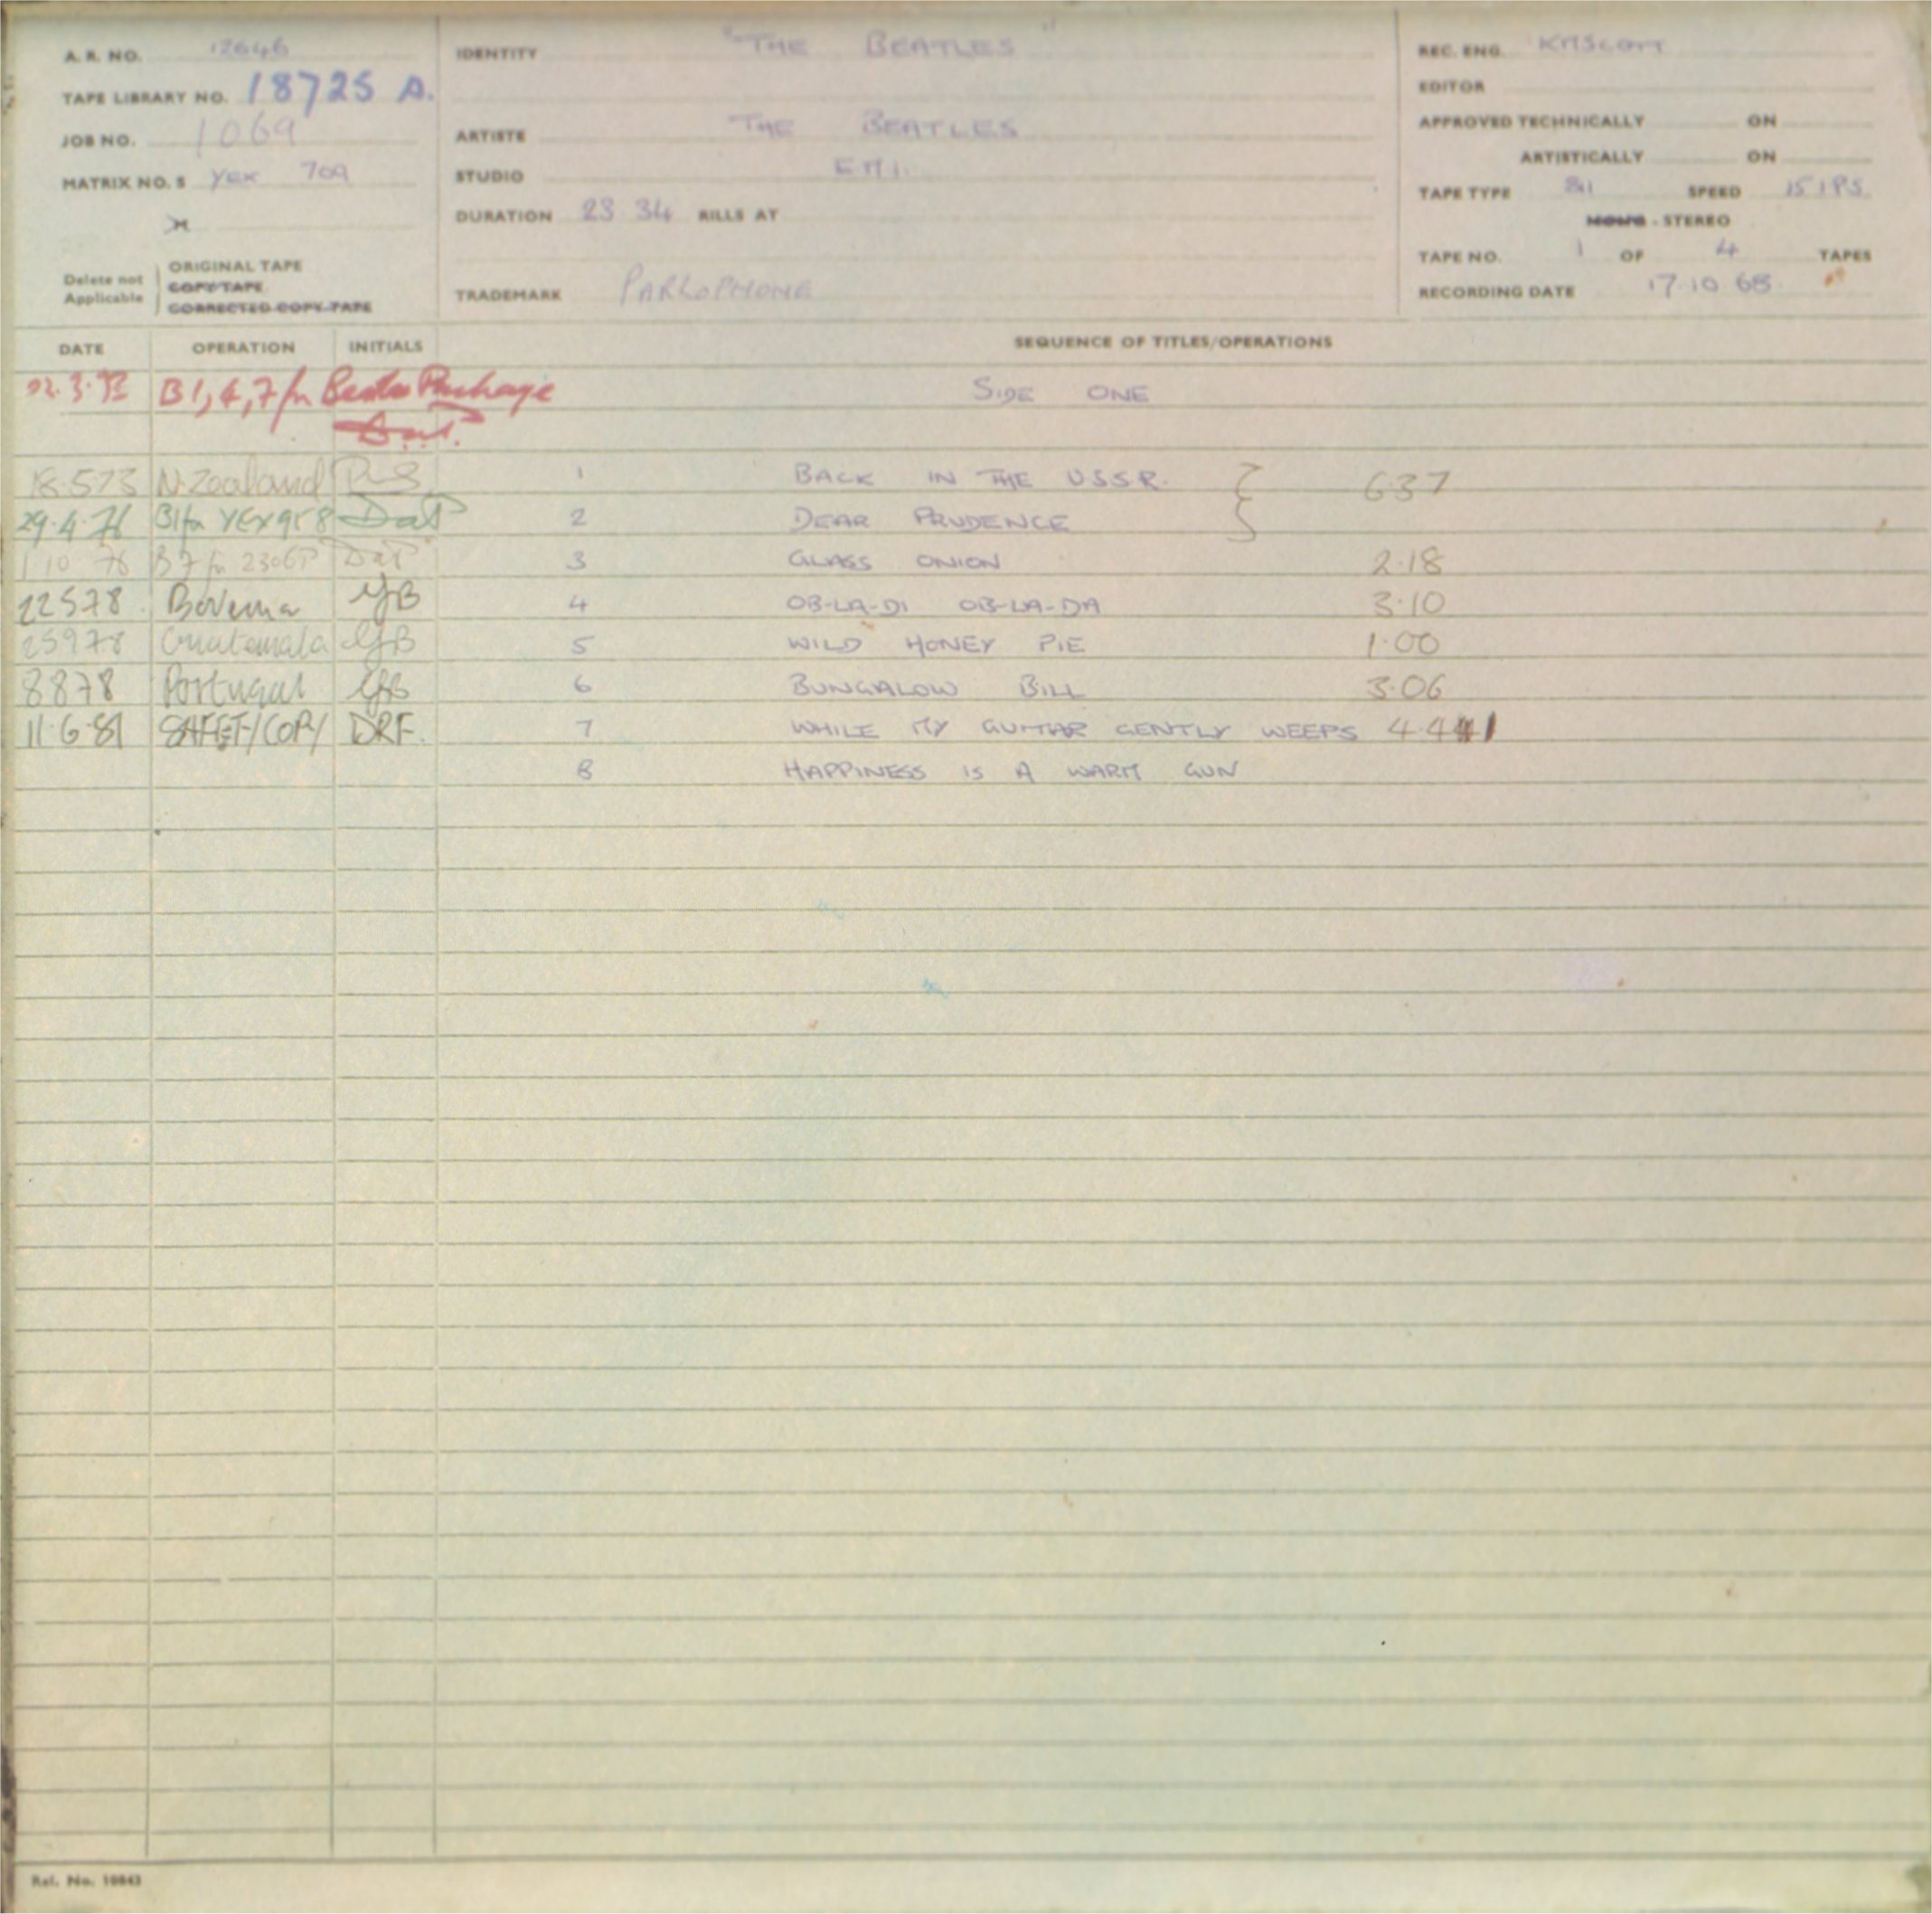 A. R. NO. 12646
TAPE LIBRARY NO. 18725 A.
JOB NO. 1069
MATRIX NO. S YEX 709
Delete not Applicable
ORIGINAL TAPE
COPY TAPE
CORRECTED COPY TAPE
IDENTITY "THE BEATLES"
ARTISTE THE BEATLES
STUDIO EMI.
DURATION 23 34 RILLS AT
TRADEMARK PARLOPHONE
REC. ENG. KHSCOTT
EDITOR
APPROVED TECHNICALLY ON
ARTISTICALLY ON
TAPE TYPE 811 SPEED 15 IPS
MONO - STEREO
TAPE NO. 1 OF 4 TAPES
RECORDING DATE 17.10 68
DATE OPERATION INITIALS SEQUENCE OF TITLES/OPERATIONS
B1, 4, 7 for Package SIDE ONE
18.5 73 N. Zealand 1 BACK IN THE USSR. 6.37
29.4.76 B1 for YEX 958 2 DEAR PRUDENCE
1 10 76 B7 for 3 GLASS ONION 2.18
22 5 78 Bovema GB 4 OB-LA-DI OB-LA-DA 3.10
25 9 78 Guatemala GB 5 WILD HONEY PIE 1.00
8 8 78 Portugal GB 6 BUNGALOW BILL 3.06
11.6.81 SAFETY COPY DRF. 7 WHILE MY GUITAR GENTLY WEEPS 4.41
8 HAPPINESS IS A WARM GUN
Ref. No. 10843